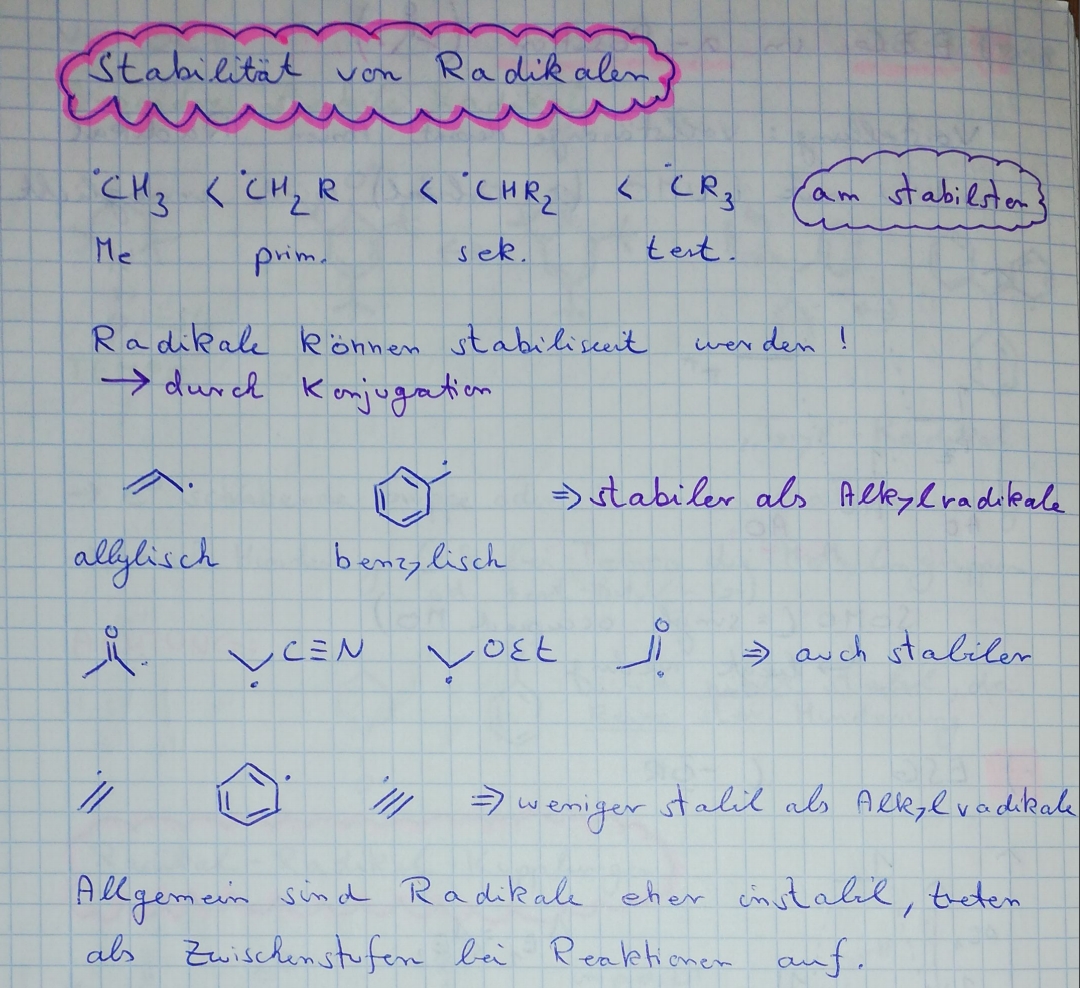 Stabilität von Radikalen
·CH₃ < ·CH₂R < ·CHR₂ < ·CR₃ am stabilsten
Me prim. sek. tert.
Radikale können stabilisiert werden!
→ durch Konjugation
⇒ stabiler als Alkylradikale
allylisch benzylisch
O C≡N OEt O ⇒ auch stabiler
⇒ weniger stabil als Alkylradikale
Allgemein sind Radikale eher instabil, treten
als Zwischenstufen bei Reaktionen auf.